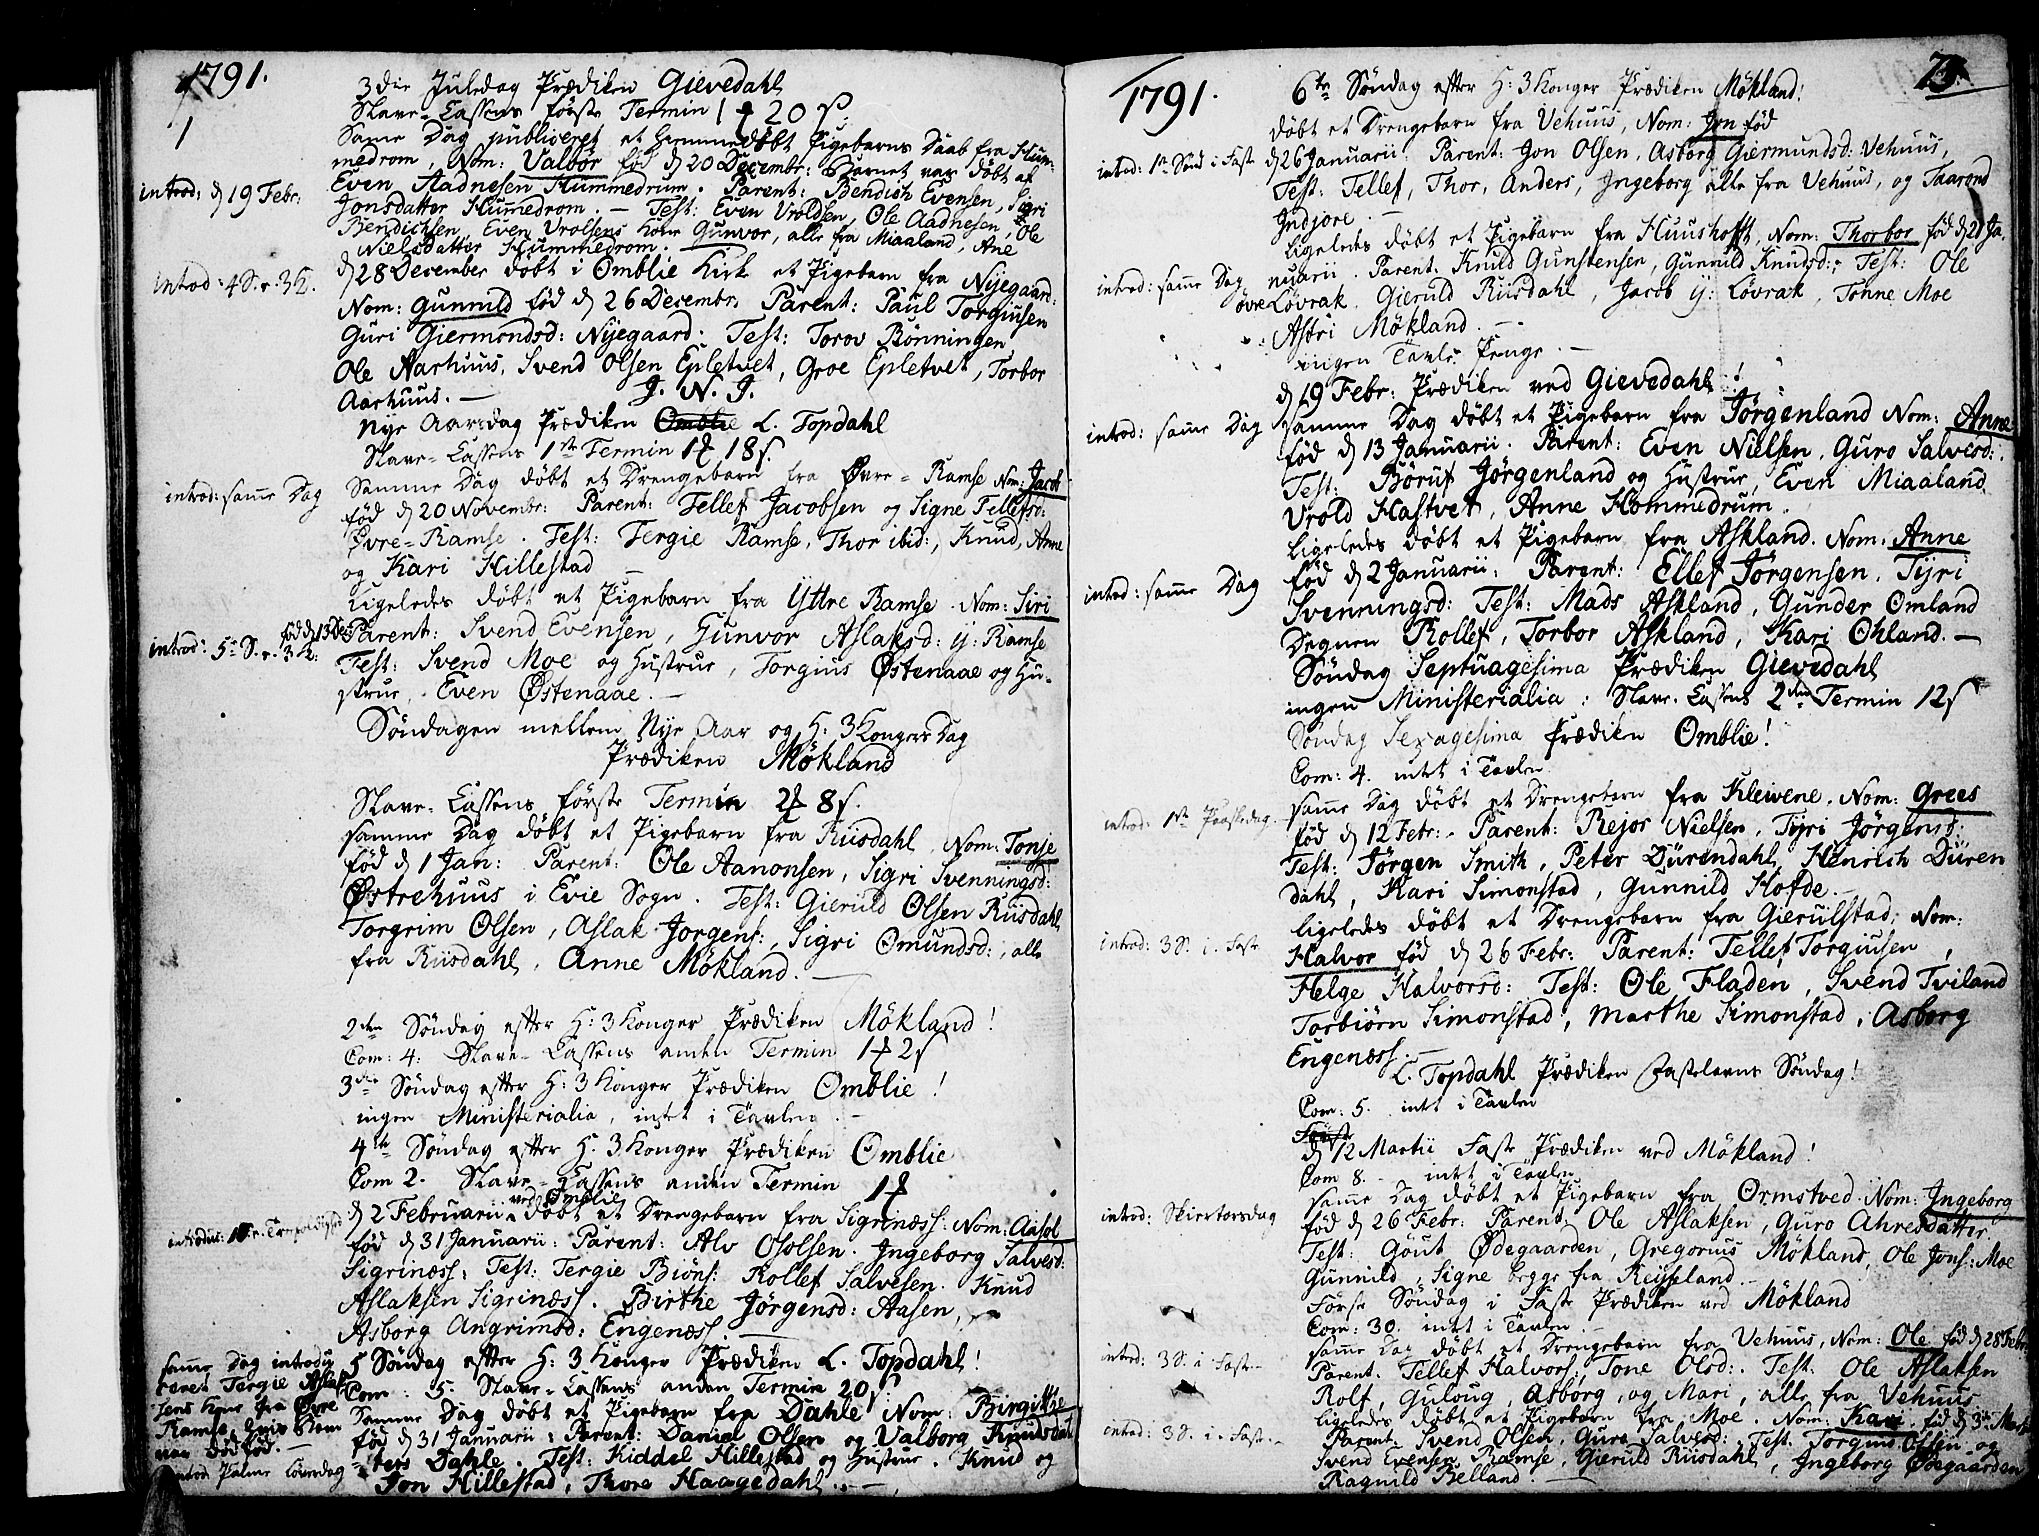 1791.
1
3die Juledag Prædiken Gievedahl
Slave-Cassens første Termin 1 20 s.
Samme Dag publiceret et hiemmedøbt Pigebarns Daab fra Hum-
medrom, Nom: Valbor fød d 20 Decembr: Barnet var døbt af
introd: d 19 Febr:
Even Aadnesen Hummedrum. Parent: Bendich Evensen, Sigri
Jonsdatter Hummedrom. — Test: Even Vroldsen, Ole Aadnesen, Ole
Bendichsen, Even Vrolsens Kone Gunvor, alle fra Miaaland, Ane
Nielsdatter Hummedrom.
introd: 4 S. e. 3 K.
d 28 December døbt i Omblie Kirk et Pigebarn fra Nyegaard:
Nom: Gunnild fød d 26 Decembr: Parent: Paul Torgiusen
Guri Giermondsd: Nyegaard. Test: Torov Bønningen
Ole Aarhuus, Svend Olsen Epletvet, Groe Epletvet, Torbor
Aarhuus. —
J. N. J.
Nye Aarsdag Prædiken Omblie L. Topdahl
Slave-Cassens 1ste Termin 1 18 s.
introd: samme Dag
Samme Dag døbt et Drengebarn fra Øvre-Ramse Nom: Jacob
fød d 20 Novembr: Parent: Tellef Jacobsen og Signe Tellefsd:
Øvre-Ramse. Test: Tergie Ramse, Thor ibid:, Knud, Anne
og Kari Hillestad —
Ligeledes døbt et Pigebarn fra Yttre Ramse. Nom: Siri
fød d 13 Dec:
introd: 5te S. e. 3 K:
Parent: Svend Evensen, Gunvor Aslaksd: y: Ramse
Test: Svend Moe og Hustrue, Torgius Østenaae og Hu-
strue, Even Østenaae. —
Søndagen mellem Nye Aar og H: 3 Kongers Dag
Prædiken Møkland
Slave-Cassens første Termin 2 8 s.
samme Dag døbt et Pigebarn fra Riisdahl, Nom: Tonje
fød d 1 Jan: Parent: Ole Aanonsen, Sigri Svenningsd:
Østrehuus i Evie Sogn. Test: Gieruld Olsen Riisdahl,
Torgrim Olsen, Aslak Jorgens:, Sigri Omundsd:, alle
fra Riisdahl, Anne Møkland. —
2den Søndag efter H: 3 Konger Prædiken Møkland!
Com: 4: Slave-Cassens anden Termin 1 2 s
3die Søndag efter H: 3 Konger Prædiken Omblie!
ingen Ministerialia, intet i Tavlen. —
4de Søndag efter H. 3 Konger Prædiken Omblie
Com 2. Slave-Cassens anden Termin 1
ved Omblie
d 2 Februarii døbt et Drengebarn fra Sigrinæss: Nom: Aasol
fød d 31 Januarii: Parent: Alv Osolsen. Ingeborg Salvesd:
Sigrinæss: Test: Tergie Biöns: Rollef Salvesen. Knud
Aslaksen Sigrinæss. Birthe Jørgensd: Aasen,
Asborg Angrimsd: Engenæss. —
samme Dag introdu
ceret Tergie Aslak
sens Kone fra Øvre
Ramse, hvis Barn
var dødfød. —
introd: Palme Løverdag
5 Søndag efter H: 3 Konger Prædiken L. Topdahl!
Com: 5. Slave-Cassens anden Termin 20 s
Samme Dag døbt et Pigebarn fra Dahle Nom: Birgithe
fød d 31 Januarii: Parent: Daniel Olsen og Valborg Knudsdat-
ters Dahle. Test: Kiddel Hillestad og Hustrue. Knud og
Jon Hillestad, Thore Haagedahl. —
1791.
6te Søndag efter H: 3 Konger Prædiken Møkland!
døbt et Drengebarn fra Vehuus, Nom: Jon fød
introd: 1te Sönd i Faste
d 26 Januarii. Parent: Jon Olsen, Asborg Giermundsd: Vehuus,
Test: Tellef, Thor, Anders, Ingeborg alle fra Vehuus, og Taarond
Indjore. —
Ligeledes døbt et Pigebarn fra Huushofft, Nom: Thorbor fød d 21 Ja-
introd: samme Dag
nuarii. Parent: Knud Gunstensen, Gunnild Knudsd: Test: Ole
øvre Løvrak, Gieruld Riisdahl, Jacob y: Løvrak, Tonne Moe
Astri Møkland. —
ingen Tavle Penge. —
d 19 Febr: Prædiken ved Gievedahl!
introd: samme Dag
samme Dag døbt et Pigebarn fra Jørgenland Nom: Anne
fød d 13 Januarii. Parent: Even Nielsen. Guro Salvesd:
Test: Börut Jørgenland og Hustrue, Even Miaaland
Vrold Hastvet, Anne Hommedrum.
Ligeledes døbt et Pigebarn fra Askland. Nom: Anne
introd: samme Dag
fød d 2 Januarii. Parent: Ellef Jørgensen. Tyri
Svenningsd: Test: Mads Askland, Gunder Omland
Degnen Rollef, Torbor Askland, Kari Ohland. —
Søndag Septuagesima Prædiken Gievedahl
ingen Ministerialia: Slave-Cassens 2den Termin 12 s
Søndag Sexagesima Prædiken Omblie!
Com: 4. intet i Tavlen
introd: 1ste Paaskedag
samme Dag døbt et Drengebarn fra Kleivene. Nom: Grees
fød d 12 Febr: Parent: Rejor Nielsen, Tyri Jørgensd:
Test: Jørgen Smith, Peter Dürendahl, Henrich Düren
dahl, Kari Simonstad, Gunnild Hofde. —
Ligeledes døbt et Drengebarn fra Gierulstad: Nom:
introd: 3 S. i Faste
Halvor fød d 26 Febr: Parent: Tellef Torgiusen,
Helge Halvorsd: Test: Ole Fladen, Svend Tviland
Torbiørn Simonstad, Marthe Simonstad, Asborg
Engenæss. —
L. Topdahl Prædiken Fastelavns Søndag!
Com: 5. intet i Tavlen
d 12 Martii Faste Prædiken ved Møkland!
Com 8. — intet i Tavlen
introd: Skiertorsdag
samme Dag døbt et Pigebarn fra Ormstved. Nom: Ingeborg
fød d 26 Febr: Parent: Ole Aslaksen, Guro Ahresdatter
Test: Gøut Ødegaarden, Gregorius Møkland, Ole Jons: Moe
Gunnild, Signe begge fra Reisseland. —
Første Søndag i Faste Prædiken ved Møkland
Com: 30. intet i Tavlen —
introd: 3 S. i Faste
samme Dag døbt et Drengebarn fra Vehuus, Nom: Ole fød d 28 Febr:
Parent: Tellef Halvors:, Tone Olsd:. Test: Ole Aslaksen
Rolf, Guloug, Asborg, og Mari, alle fra Vehuus
introd: 3 S. i Faste
Ligeledes døbt et Pigebarn fra Moe. Nom: Kari. fød d 3die Martii
Parent: Svend Olsen, Guro Salvesd: Test: Torgius Olsen og
Svend Evensen Ramse, Gieruld Riisdahl, Ingeborg Ødegaarden
Ragnild Belland. —